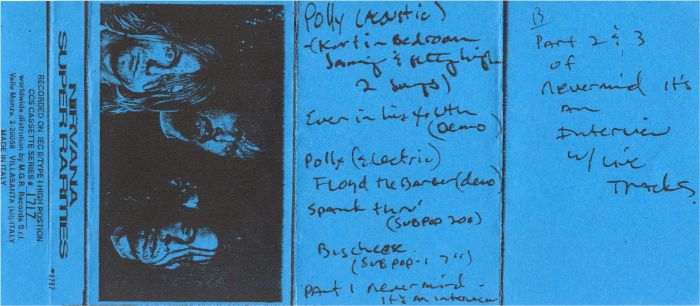 NIRVANA
SUPER RARITIES
RECORDED ON IEC II/TYPE I HIGH POSITION
CCS CASSETTE SERIES # 1717
worldwide distribution by M.G.R. Records S.r.l.
Valle Monza, 2 20058 VILLASANTA (MI) ITALY
MADE IN ITALY
#1717
Polly (Acoustic)
-(Kurt in Bedroom
Jamming & getting high
2 songs)
Ever in his youth
(Demo)
Polly (Electric)
Floyd the Barber (demo)
Spank thru'
(SUBPOP 200)
(SUBPOP-1 7")
Part 1 Nevermind -
it's an interview
B
Part 2 & 3
of
Nevermind it's
An
Interview
w/ Live
Tracks.